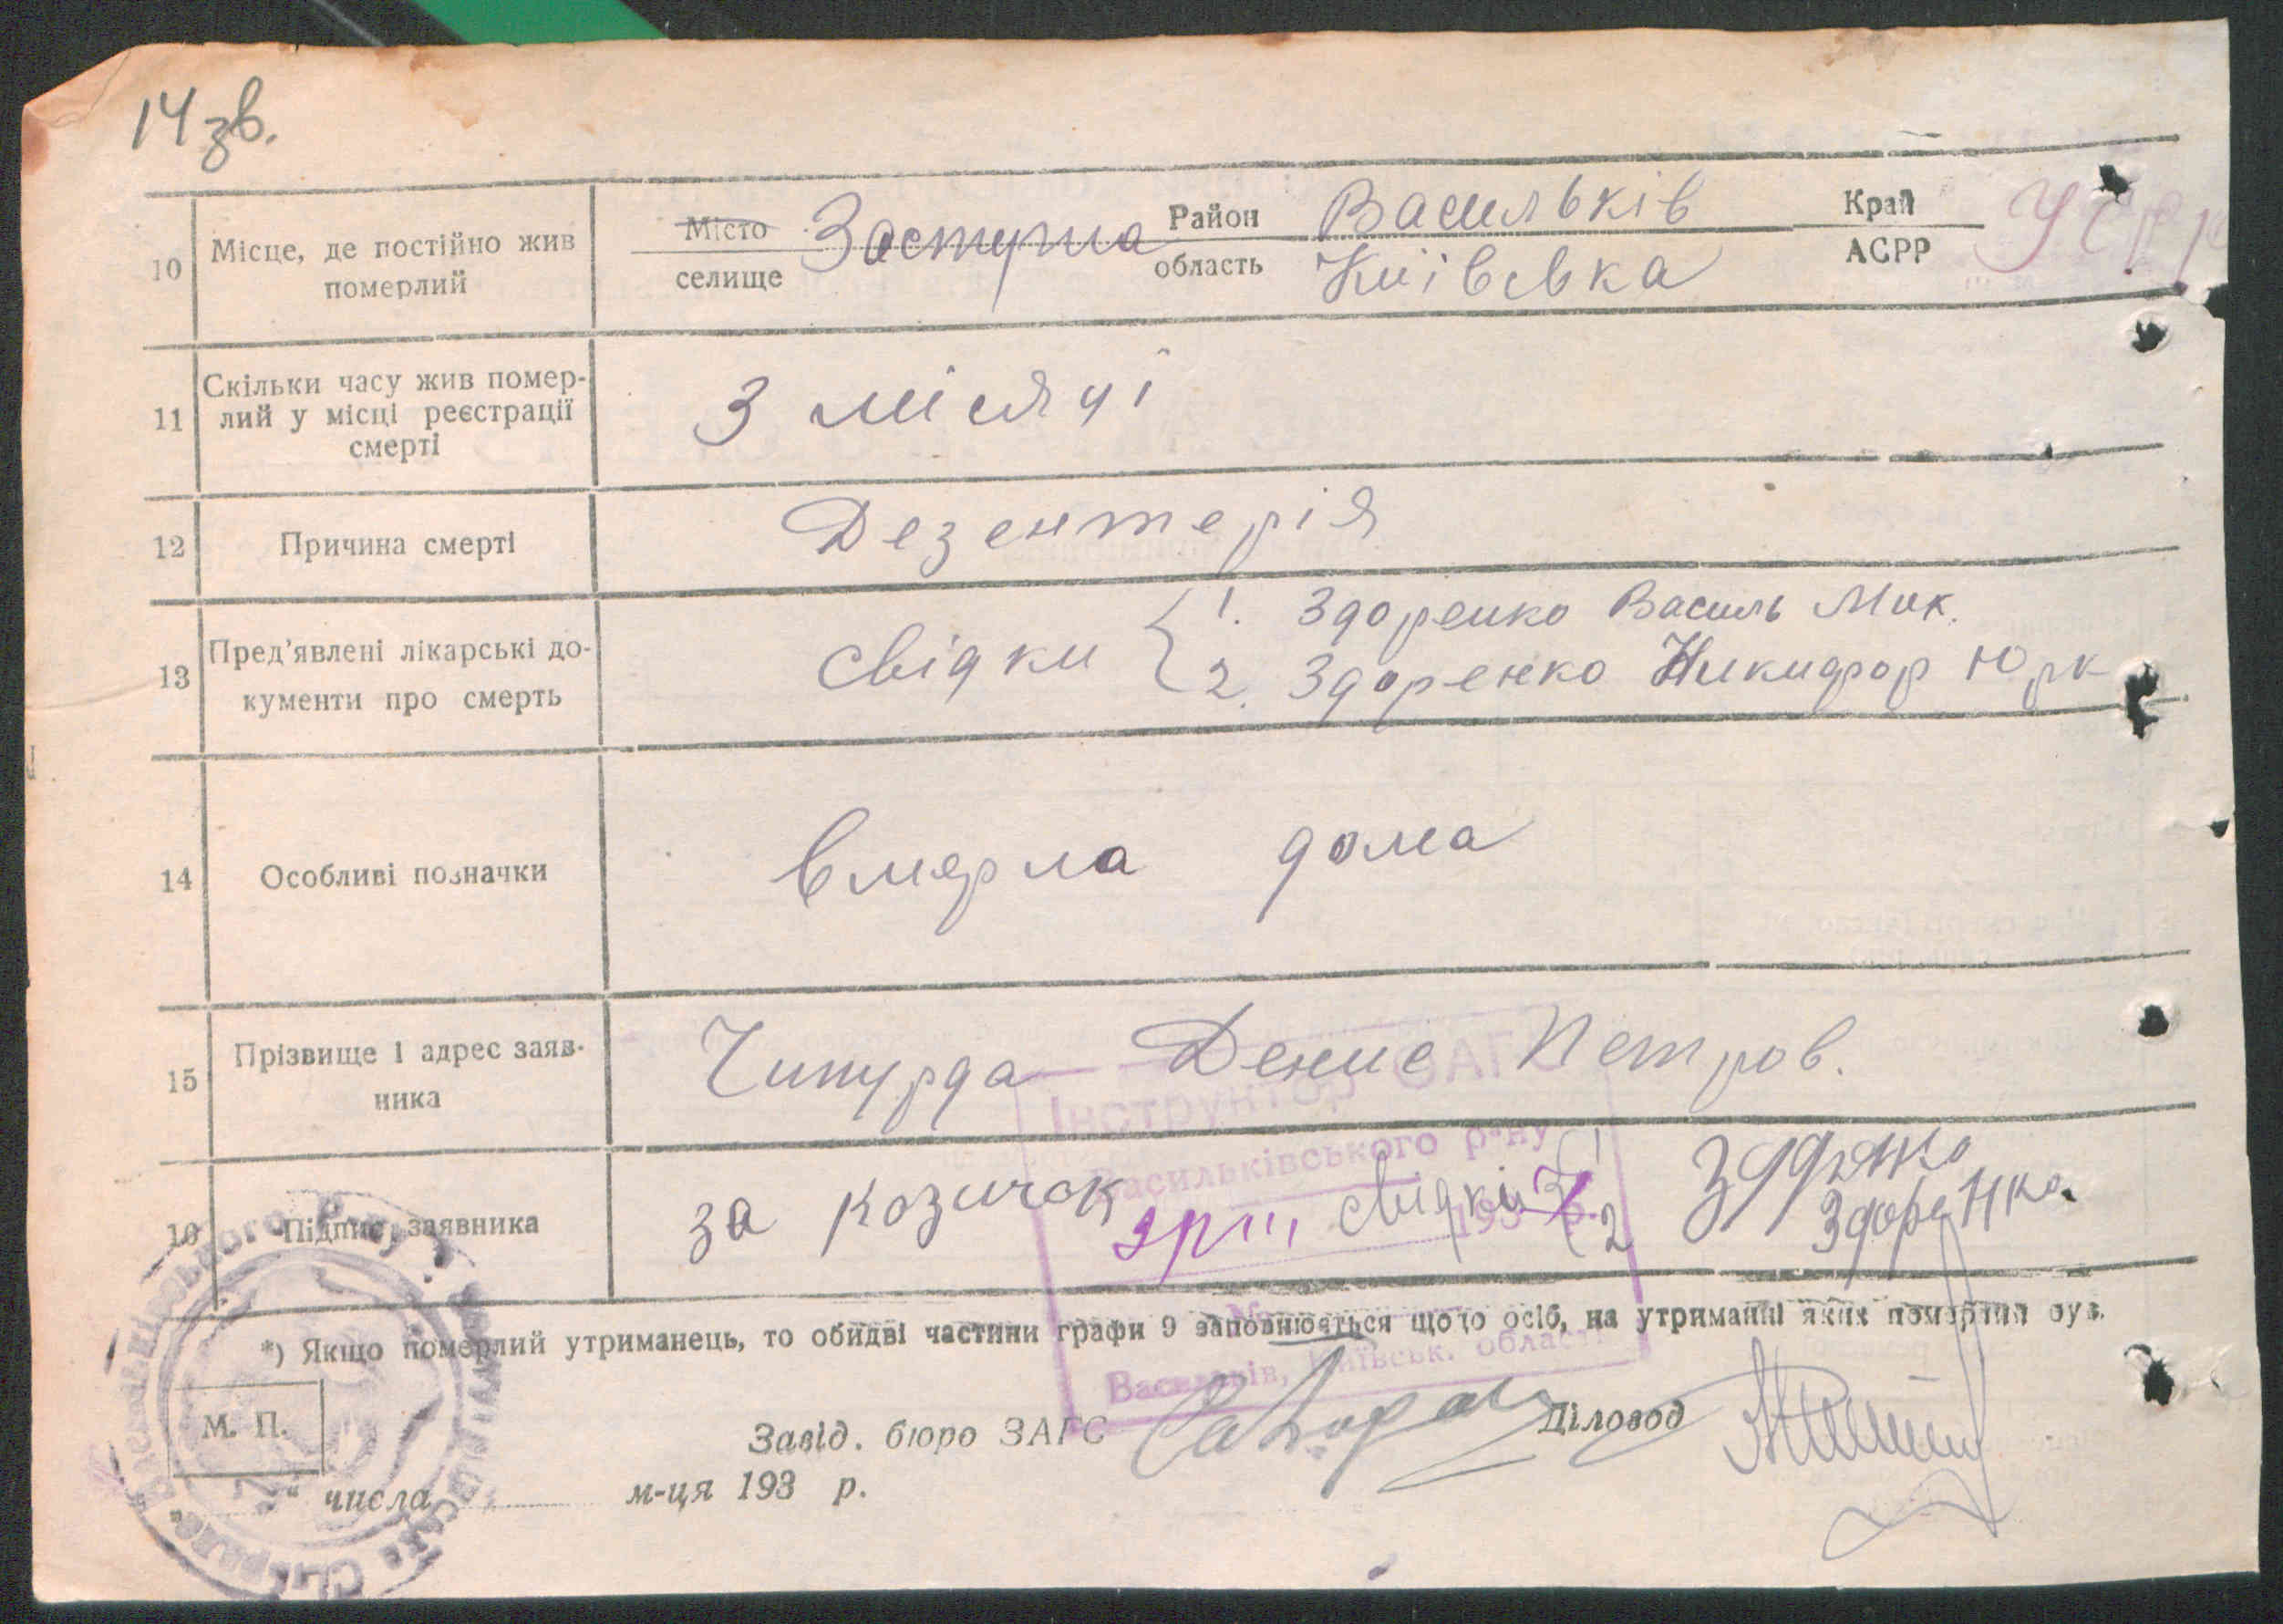 14 зв.
10 Місце, де постійно жив померлий
Місто селище Застугна Район Васильків область Київська Край АСРР УСРР
11 Скільки часу жив помер-
лий у місці реєстрації
смерті
3 місячі
12 Причина смерті Дезентерія
13 Пред'явлені лікарські до-
кументи про смерть
свідки { 1. Здоренко Василь Мик.
2. Здоренко Никифор Юрк
14 Особливі позначки вмерла дома
15 Прізвище і адрес заяв-
ника
Чипурда Денис Петров.
Інструктор ЗАГС
Васильківського р-ну
193 р.
Васильків, Київськ. області
16 Підпис заявника
за козичок свидкі { 1
2 Здоренко
*) Якщо померлий утриманець, то обидві частини графи 9 заповнюється щодо осіб, на утриманні яких померлий був.
М. П.
Завід. бюро ЗАГС Діловод
" " числа м-ця 193 р.